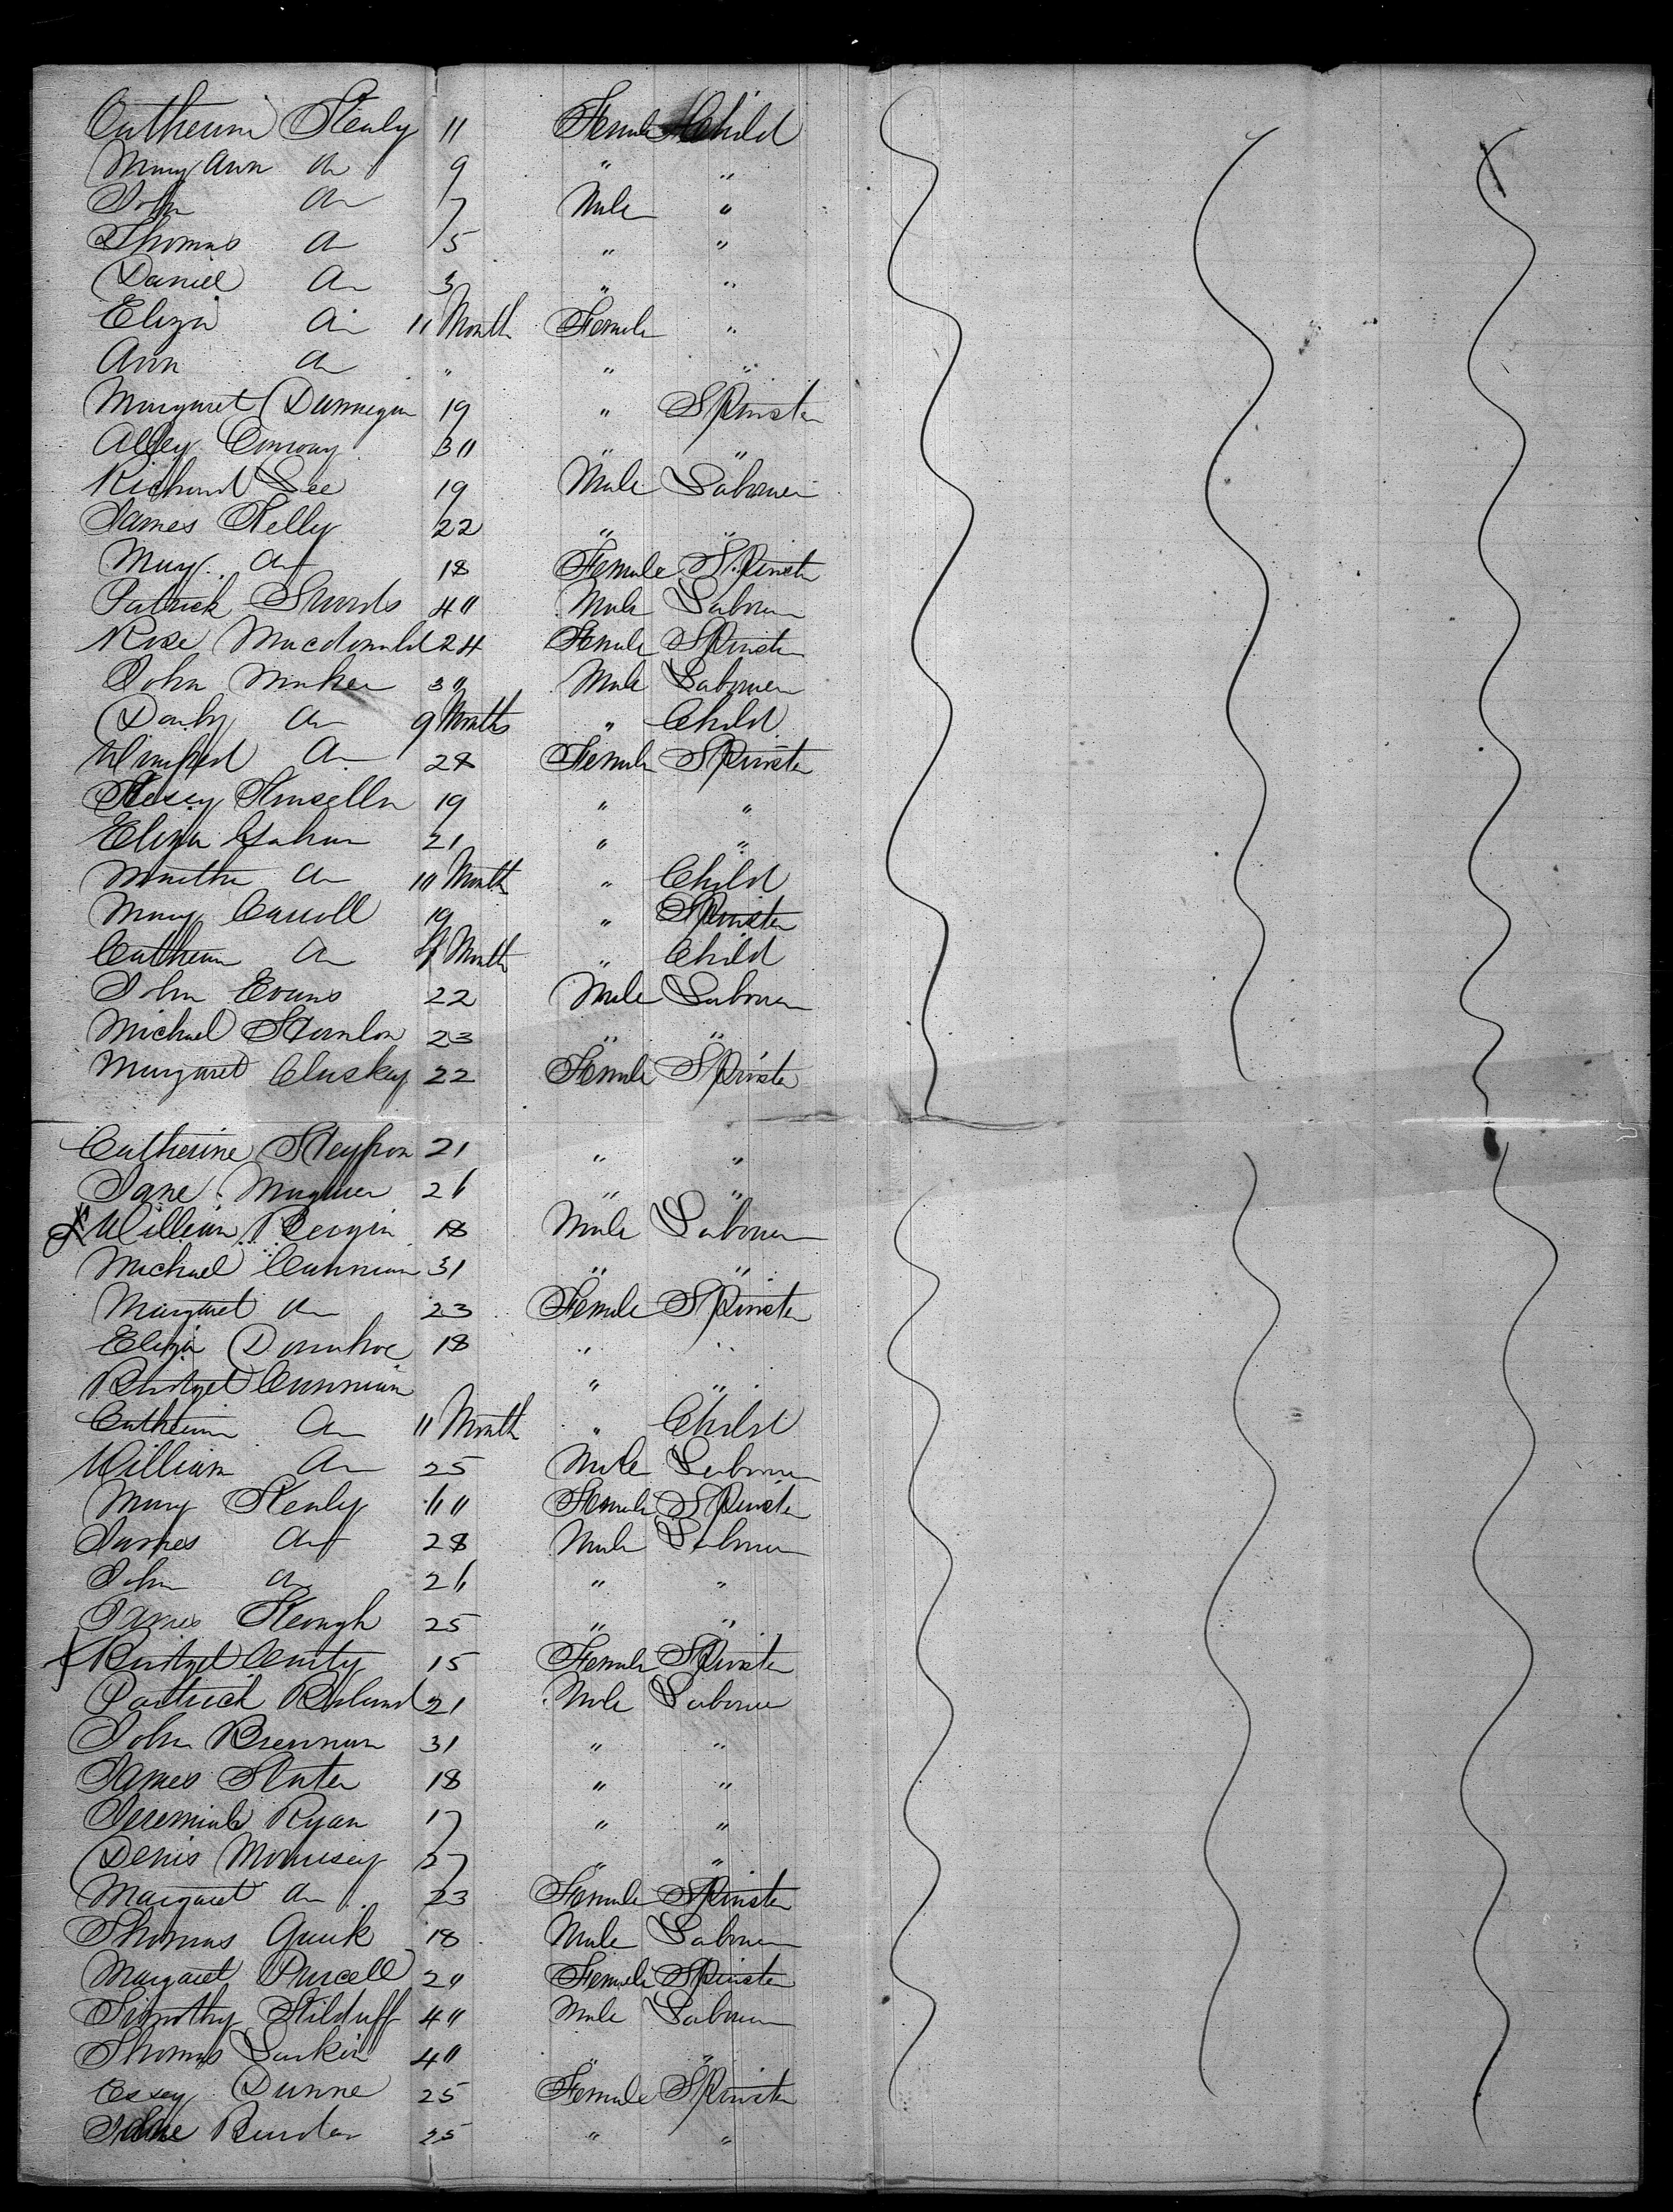 Catherine Healy 11 Female Child
Mary Ann do 9 " "
John do 7 Male "
Thomas do 5 " "
Daniel do 3 " "
Eliza do 11 Month Female "
Ann do " " "
Margaret Dunnegan 19 " Spinster
Alley Conway 30 " "
Richard Lee 19 Male Labourer
James Kelly 22 " "
Mary do 18 Female Spinster
Patrick Swords 40 Male Labourer
Rose Macdonald 24 Female Spinster
John Maher 30 Male Labourer
Darby do 9 Months " Child
Winifred do 28 Female Spinster
Kinsella 19 " "
Eliza Gahan 21 " "
Martha do 10 Month " Child
Mary Carroll 19 " Spinster
Catherine do 4 Month " Child
John Evans 22 Male Labourer
Michael Scanlon 23 " "
Margaret Cluskey 22 Female Spinster
Catherine 21 " "
Jane Maguire 26 " "
William Bergin 18 Male Labourer
Michael Cunnian 31 " "
Margaret do 23 Female Spinster
Eliza Donahoe 18 " "
Bridget Cunnian " "
Catherine do 11 Month " Child
William do 25 Male Labourer
Mary Healy 60 Female Spinster
James do 28 Male Labourer
John do 26 " "
James Keough 25 " "
Bridget 15 Female Spinster
Patrick Boland 21 Male Labourer
John Brennan 31 " "
James Slater 18 " "
Jeremiah Ryan 17 " "
Denis Morrisey 27 " "
Margaret do 23 Female Spinster
Thomas Quirk 18 Male Labourer
Margaret Purcell 20 Female Spinster
Timothy Kilduff 40 Male Labourer
Thomas Larkin 40 " "
Essey Dunne 25 Female Spinster
Jane 25 " "